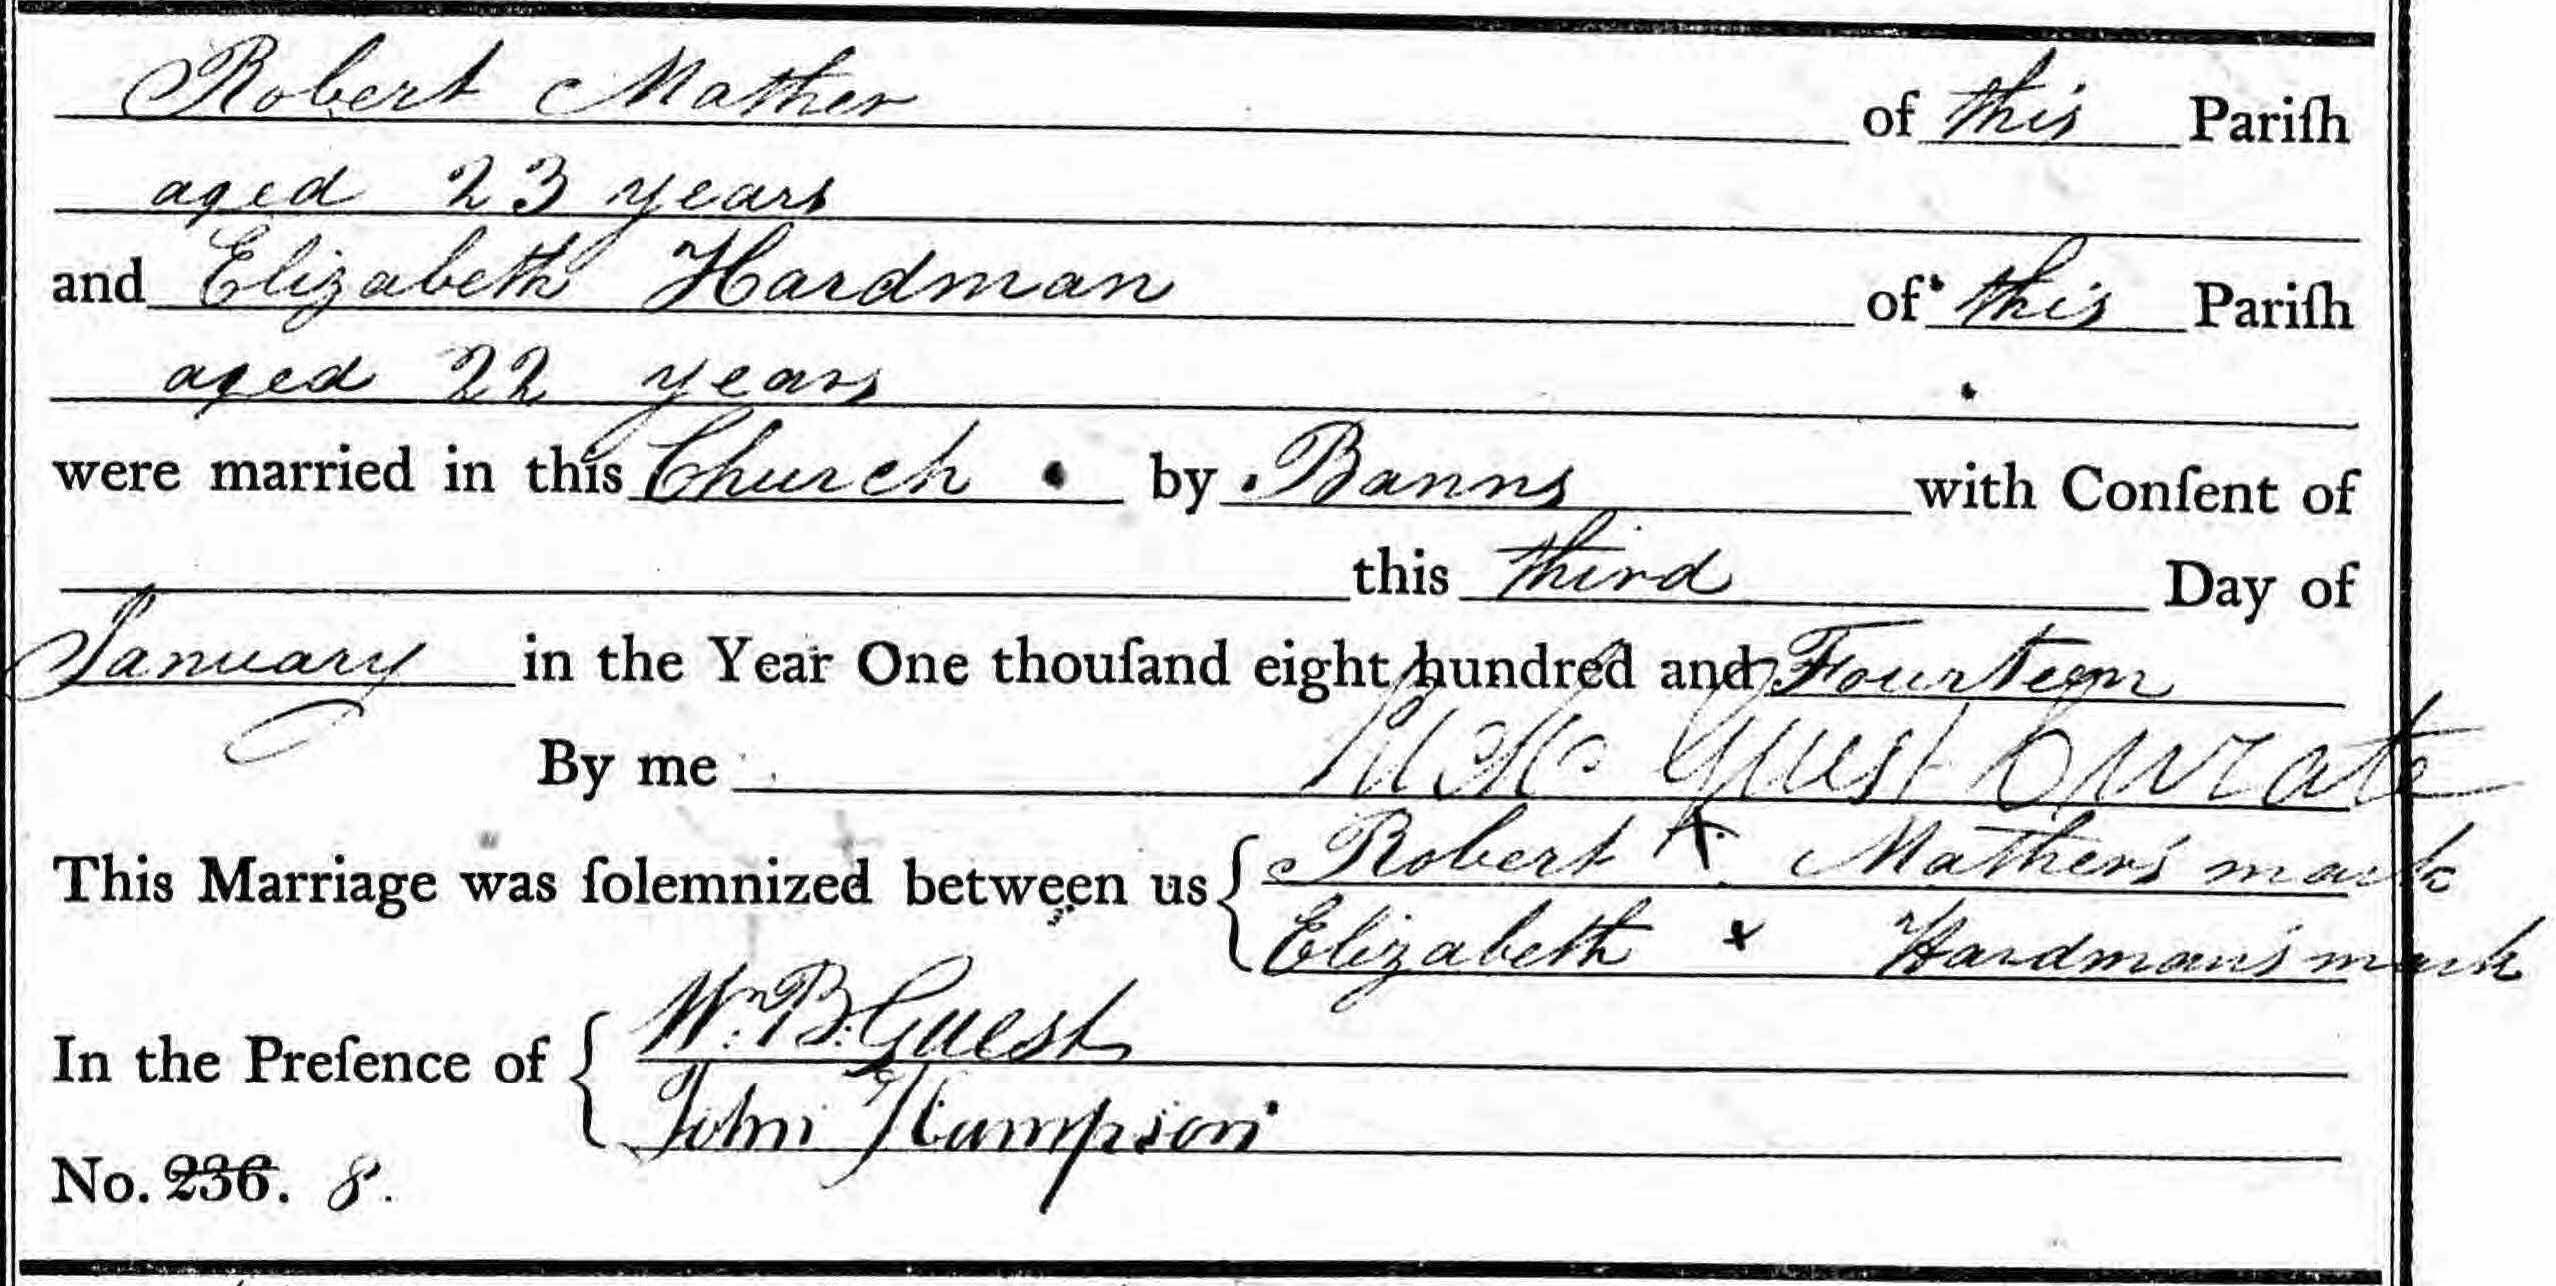 Robert Mather of this Pariſh
aged 23 years
and Elizabeth Hardman of this Pariſh
aged 22 years
were married in this Church by Banns with Conſent of
this third Day of
January in the Year One thouſand eight hundred and Fourteen
By me Guest Curate
This Marriage was ſolemnized between us { Robert X Mather's mark
Elizabeth x Hardman's mark
In the Preſence of { Wm. B. Guest
John Hampson
No. 236. 8.